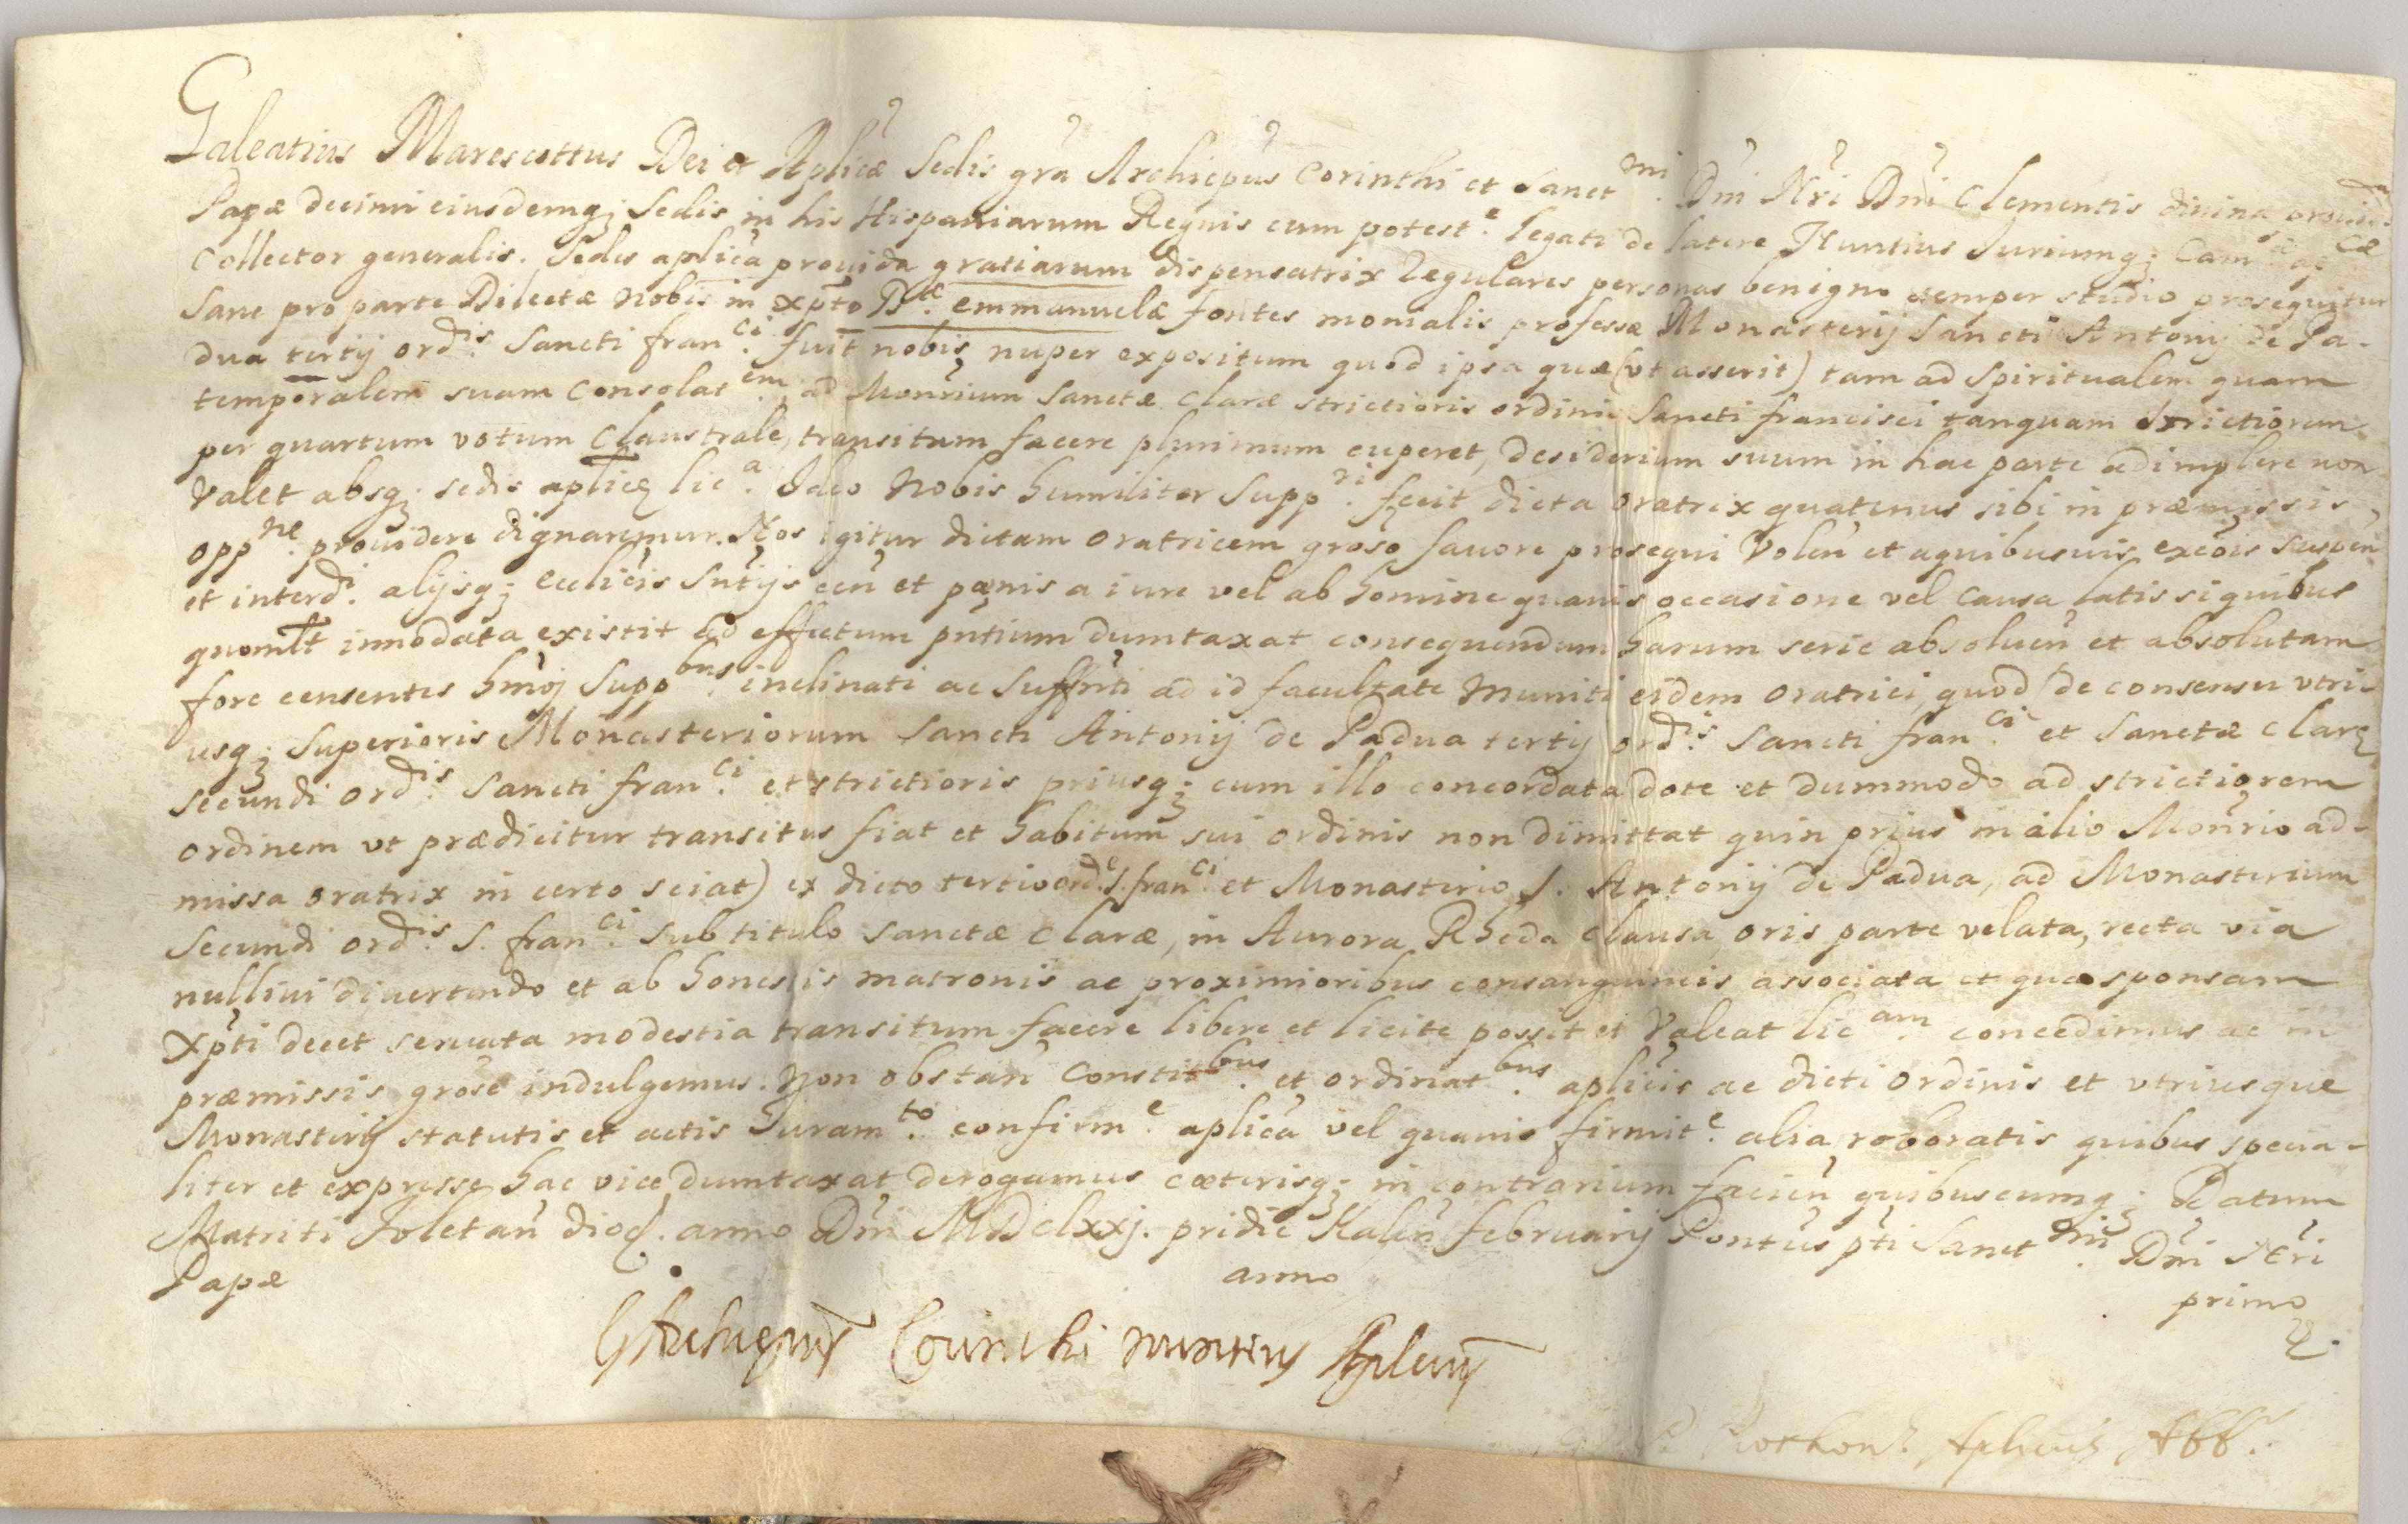 Galeatius Marescottus Dei et Aplicæ Sedis gra Archiepus Corinthi et Sanct.mi Dni Nri Dni Clementis divina provid.a
Papæ decimi eiusdemq; Sedis in his Hispaniarum Regnis cum potest.e legati de latere Nuntius Juriumq; Cam.æ ap.cæ
Collector generalis. Sedes aplica provida gratiarum dispensatrix Regulares personas benigno semper studio prosequitur
Sane pro parte Dilectæ nobis in Xpto B.tæ Emmanuelæ fontes monialis professæ Monasterij Sancti Antonij de Pa-
dua tertij ord.is Sancti fran.ci fuit nobis nuper expositum quod ipsa quæ (vt asserit) tam ad Spiritualem quam
temporalem suam Consolat.em ad Monrium Sanctæ Claræ strictioris ordinis Sancti francisci tanquam Strictiorem
per quartum votum Claustrale, transitum facere plurimum cuperet, desiderium suum in hac parte adimplere non
Valet absq; sedis aplicę lic.a Ideo Nobis humiliter Supp.ri fecit dicta Oratrix quatenus sibi in præmissis,
opp.ne providere dignaremur. Nos igitur dictam Oratricem groso favore prosequi Volen et aquibusuis excois suspen
et interd.i alijsq; ecclicis Sntijs cen et pœnis a iure vel ab homine quauis occasione vel Causa latis siquibus
quomlt innodata existit ad effectum pntium dumtaxat consequendum harum serie absoluen et absolutam
fore censentes hmoj Supp.bus inclinati ac Suffnti ad id facultate muniti eidem Oratrici quod (de consensu vtri-
usq; Superioris Monasteriorum Sancti Antonij de Padua tertij ord.is Sancti fran.ci et Sanctæ Clarę
secundi ord.is Sancti fran.ci et strictioris priusq; cum illo concordata dote et dummodo ad strictiorem
ordinem vt prædicitur transitus fiat et habitum sui ordinis non dimittat quin prius in alio Monrio ad-
missa Oratrix in certo sciat) ex dicto tertio ord.e S. fran.ci et Monasterio S. Antonij de Padua, ad Monasterium
Secundi ord.is S. fran.ci sub titulo Sanctæ Claræ, in Aurora, Rheda clausa oris parte velata, recta via
nullivi divertendo et ab honestis matronis ac proximioribus consanguineis associata et qua sponsam
Xpti decet servata modestia transitum facere libere et licite possit et Valeat lic.am concedimus ac in
præmissis grose indulgemus. Non obstan Constit.bus et ordinat.bus aplicis ac dicti Ordinis et vtriusque
Monasterij statutis et actis Juram.to confirm.e aplica vel quauis firmit.e alia roboratis quibus specia-
liter et expresse hac vice dumtaxat derogamus cœterisq; in contrarium facien quibuscumq; Datum
Matriti Toletan dioc. anno Dni MDclxxj. pridie Kalen februarij Pontus pti Sanct.mi Dni Nri
Papæ anno primo
G Archiepus Corinthi nuntius Aplicus
Prothon.s Aplicus Abb.r